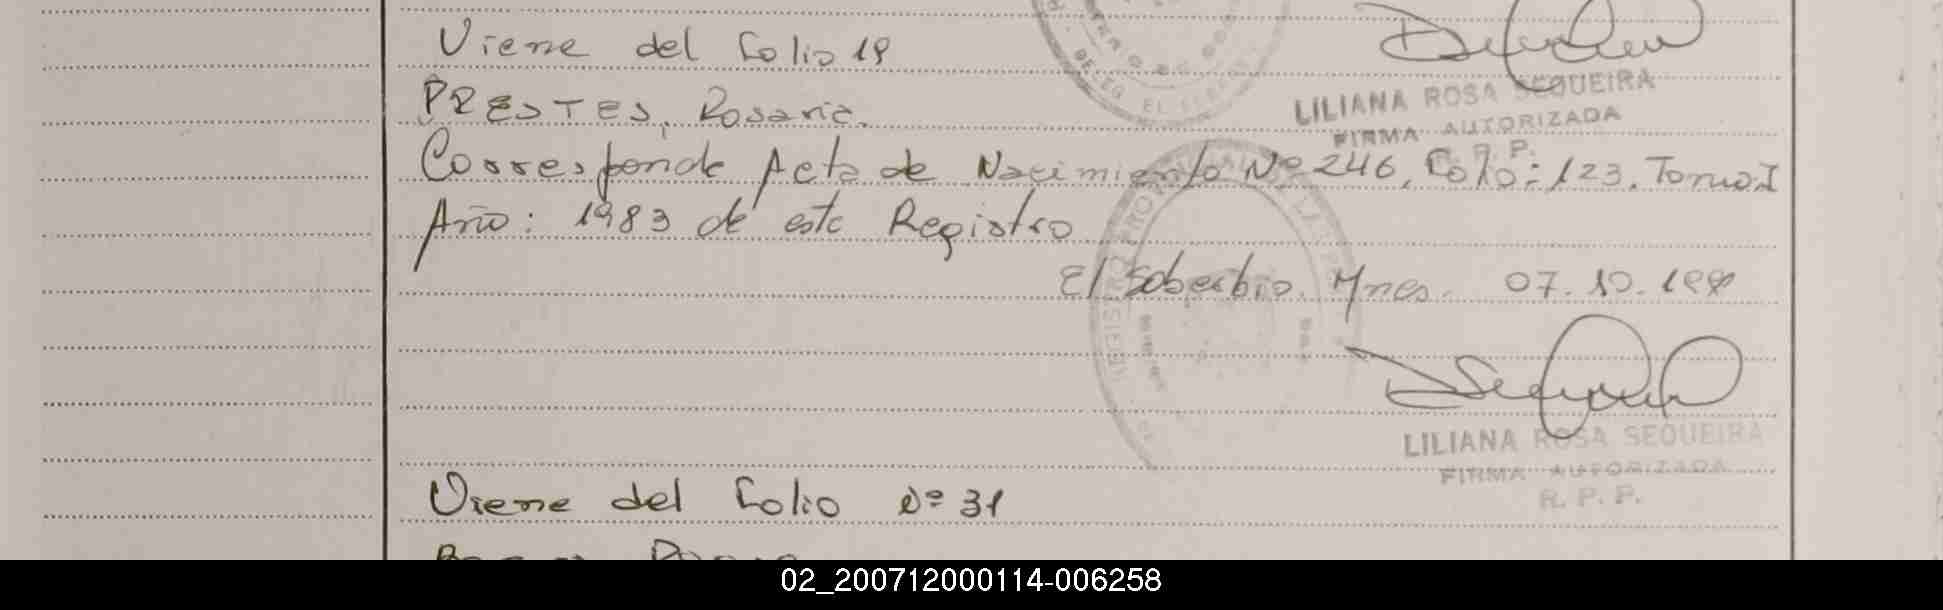 Viene del folio 19
LILIANA ROSA SEQUEIRA
FIRMA AUTORIZADA
R. P. P.
PRESTES, Rosaria.
Corresponde Acta de Nacimiento Nº 246, Folio: 123. Tomo I
Año: 1983 de este Registro
El Soberbio. Mnes. 07.10.199
LILIANA ROSA SEQUEIRA
FIRMA AUTORIZADA
R. P. P.
Viene del folio Nº 31
02_200712000114-006258